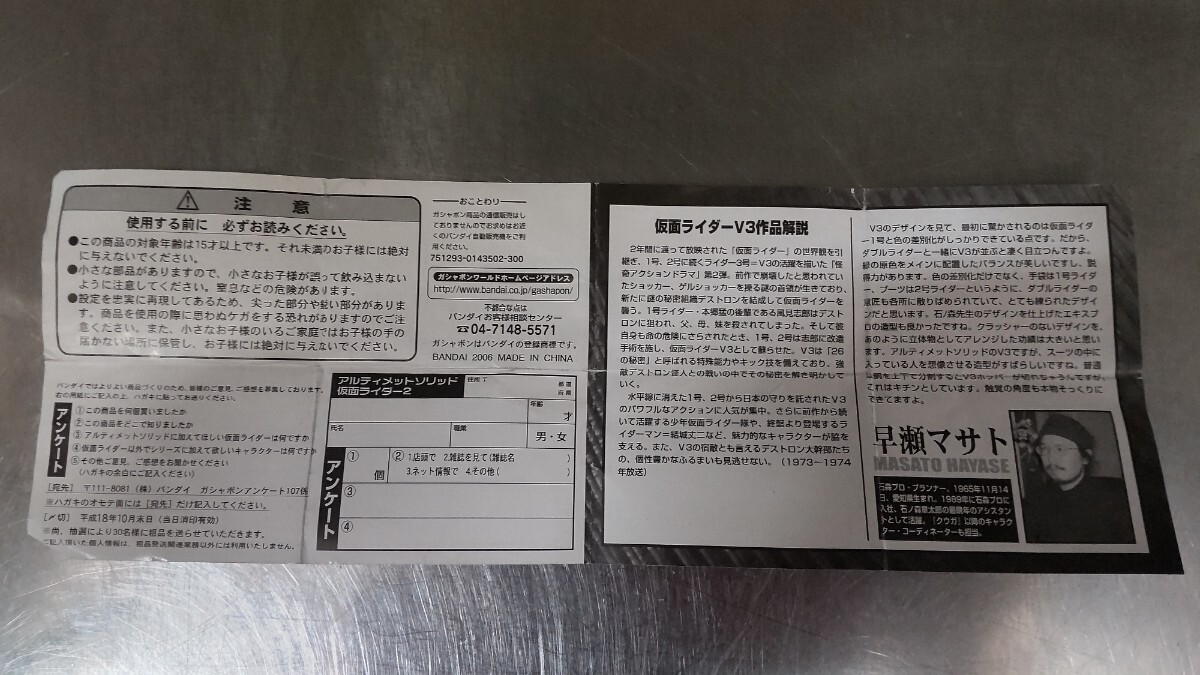 ⚠ 注意
使用する前に 必ずお読みください。
●この商品の対象年齢は15才以上です。それ未満のお子様には絶対
に与えないでください。
●小さな部品がありますので、小さなお子様が誤って飲み込まない
ように注意してください。窒息などの危険があります。
●設定を忠実に再現してあるため、尖った部分や鋭い部分がありま
す。商品を使用の際に思わぬケガをする恐れがありますのでご注
意ください。また、小さなお子様のいるご家庭ではお子様の手の
届かない場所に保管し、お子様には絶対に与えないでください。
おことわり
ガシャポン商品の通信販売はし
ておりませんのでお求めはお近
くのバンダイ自動販売機をご利
用ください。
751293-0143502-300
ガシャポンワールドホームページアドレス
http://www.bandai.co.jp/gashapon/
不都合な点は
バンダイお客様相談センター
☎04-7148-5571
ガシャポンはバンダイの登録商標です。
BANDAI 2006 MADE IN CHINA
バンダイではよりよい商品づくりのため、皆様のご意見、ご感想を募集しております。
右の用紙にご記入の上、ハガキに貼ってお送りください。
アンケート
①この商品を何個買いましたか
②この商品をどこで知りましたか
③アルティメットソリッドに加えてほしい仮面ライダーは何ですか
④仮面ライダー以外でシリーズに加えて欲しいキャラクターは何ですか
⑤その他ご意見、ご感想をお聞かせください
(ハガキの余白にご記入ください)
[宛先] 〒111-8081 (株) バンダイ ガシャポンアンケート107係
※ハガキのオモテ面には [宛先] だけ記入してください。
[〆切] 平成18年10月末日 (当日消印有効)
※尚、抽選により30名様に粗品を送らせていただきます。
ご記入頂いた個人情報は、粗品発送関連業務以外には利用いたしません。
アルティメットソリッド
仮面ライダー2
住所 〒
都道
府県
年齢
才
氏名
職業
男・女
アンケート
①
個
② 1.店頭で 2.雑誌を見て(雑誌名 )
3.ネット情報で 4.その他( )
③
④
仮面ライダーV3作品解説
2年間に渡って放映された「仮面ライダー」の世界観を引
継ぎ、1号、2号に続くライダー3号=V3の活躍を描いた「怪
奇アクションドラマ」第2弾。前作で崩壊したと思われてい
たショッカー、ゲルショッカーを操る謎の首領が生きており、
新たに謎の秘密組織デストロンを結成して仮面ライダーを
襲う。1号ライダー・本郷猛の後輩である風見志郎はデスト
ロンに狙われ、父、母、妹を殺されてしまう。そして彼
自身も命の危険にさらされたとき、1号、2号は志郎に改造
手術を施し、仮面ライダーV3として蘇らせた。V3は「26
の秘密」と呼ばれる特殊能力やキック技を備えており、強
敵デストロン怪人との戦いの中でその秘密を解き明かして
いく。
水平線に消えた1号、2号から日本の守りを託されたV3
のパワフルなアクションに人気が集中。さらに前作から続
いて活躍する少年仮面ライダー隊や、終盤より登場するラ
イダーマン=結城丈二など、魅力的なキャラクターが脇を
支える。また、V3の宿敵とも言えるデストロン大幹部たち
の、個性豊かなふるまいも見逃せない。(1973〜1974
年放送)
V3のデザインを見て、最初に驚かされるのは仮面ライダ
ー1号と色の差別化がしっかりできている点です。だから、
ダブルライダーと一緒にV3が並ぶと凄く目立つんですよ。
緑の原色をメインに配置したバランスが美しいですし、説
得力があります。色の差別化だけでなく、手袋は1号ライダ
ー、ブーツは2号ライダーというように、ダブルライダーの
意匠も各所に散りばめられていて、とても練られたデザイ
ンだと思います。石ノ森先生のデザインを仕上げたエキスプ
ロの造型も良かったですね。クラッシャーのないデザインを、
あのように立体物としてアレンジした功績は大きいと思い
ます。アルティメットソリッドのV3ですが、スーツの中に
入っている人を想像させる造型がすばらしいですね。普通
は胴を上下で分割するとV3ホッパーが切れちゃうんですが、
これはキチンとしています。触覚の角度も本物そっくりに
できてますよ。
早瀬マサト
MASATO HAYASE
石森プロ・プランナー。1965年11月14
日、愛知県生まれ。1989年に石森プロに
入社、石ノ森章太郎の最晩年のアシスタン
トとして活躍。『クウガ』以降のキャラク
ター・コーディネーターも担当。